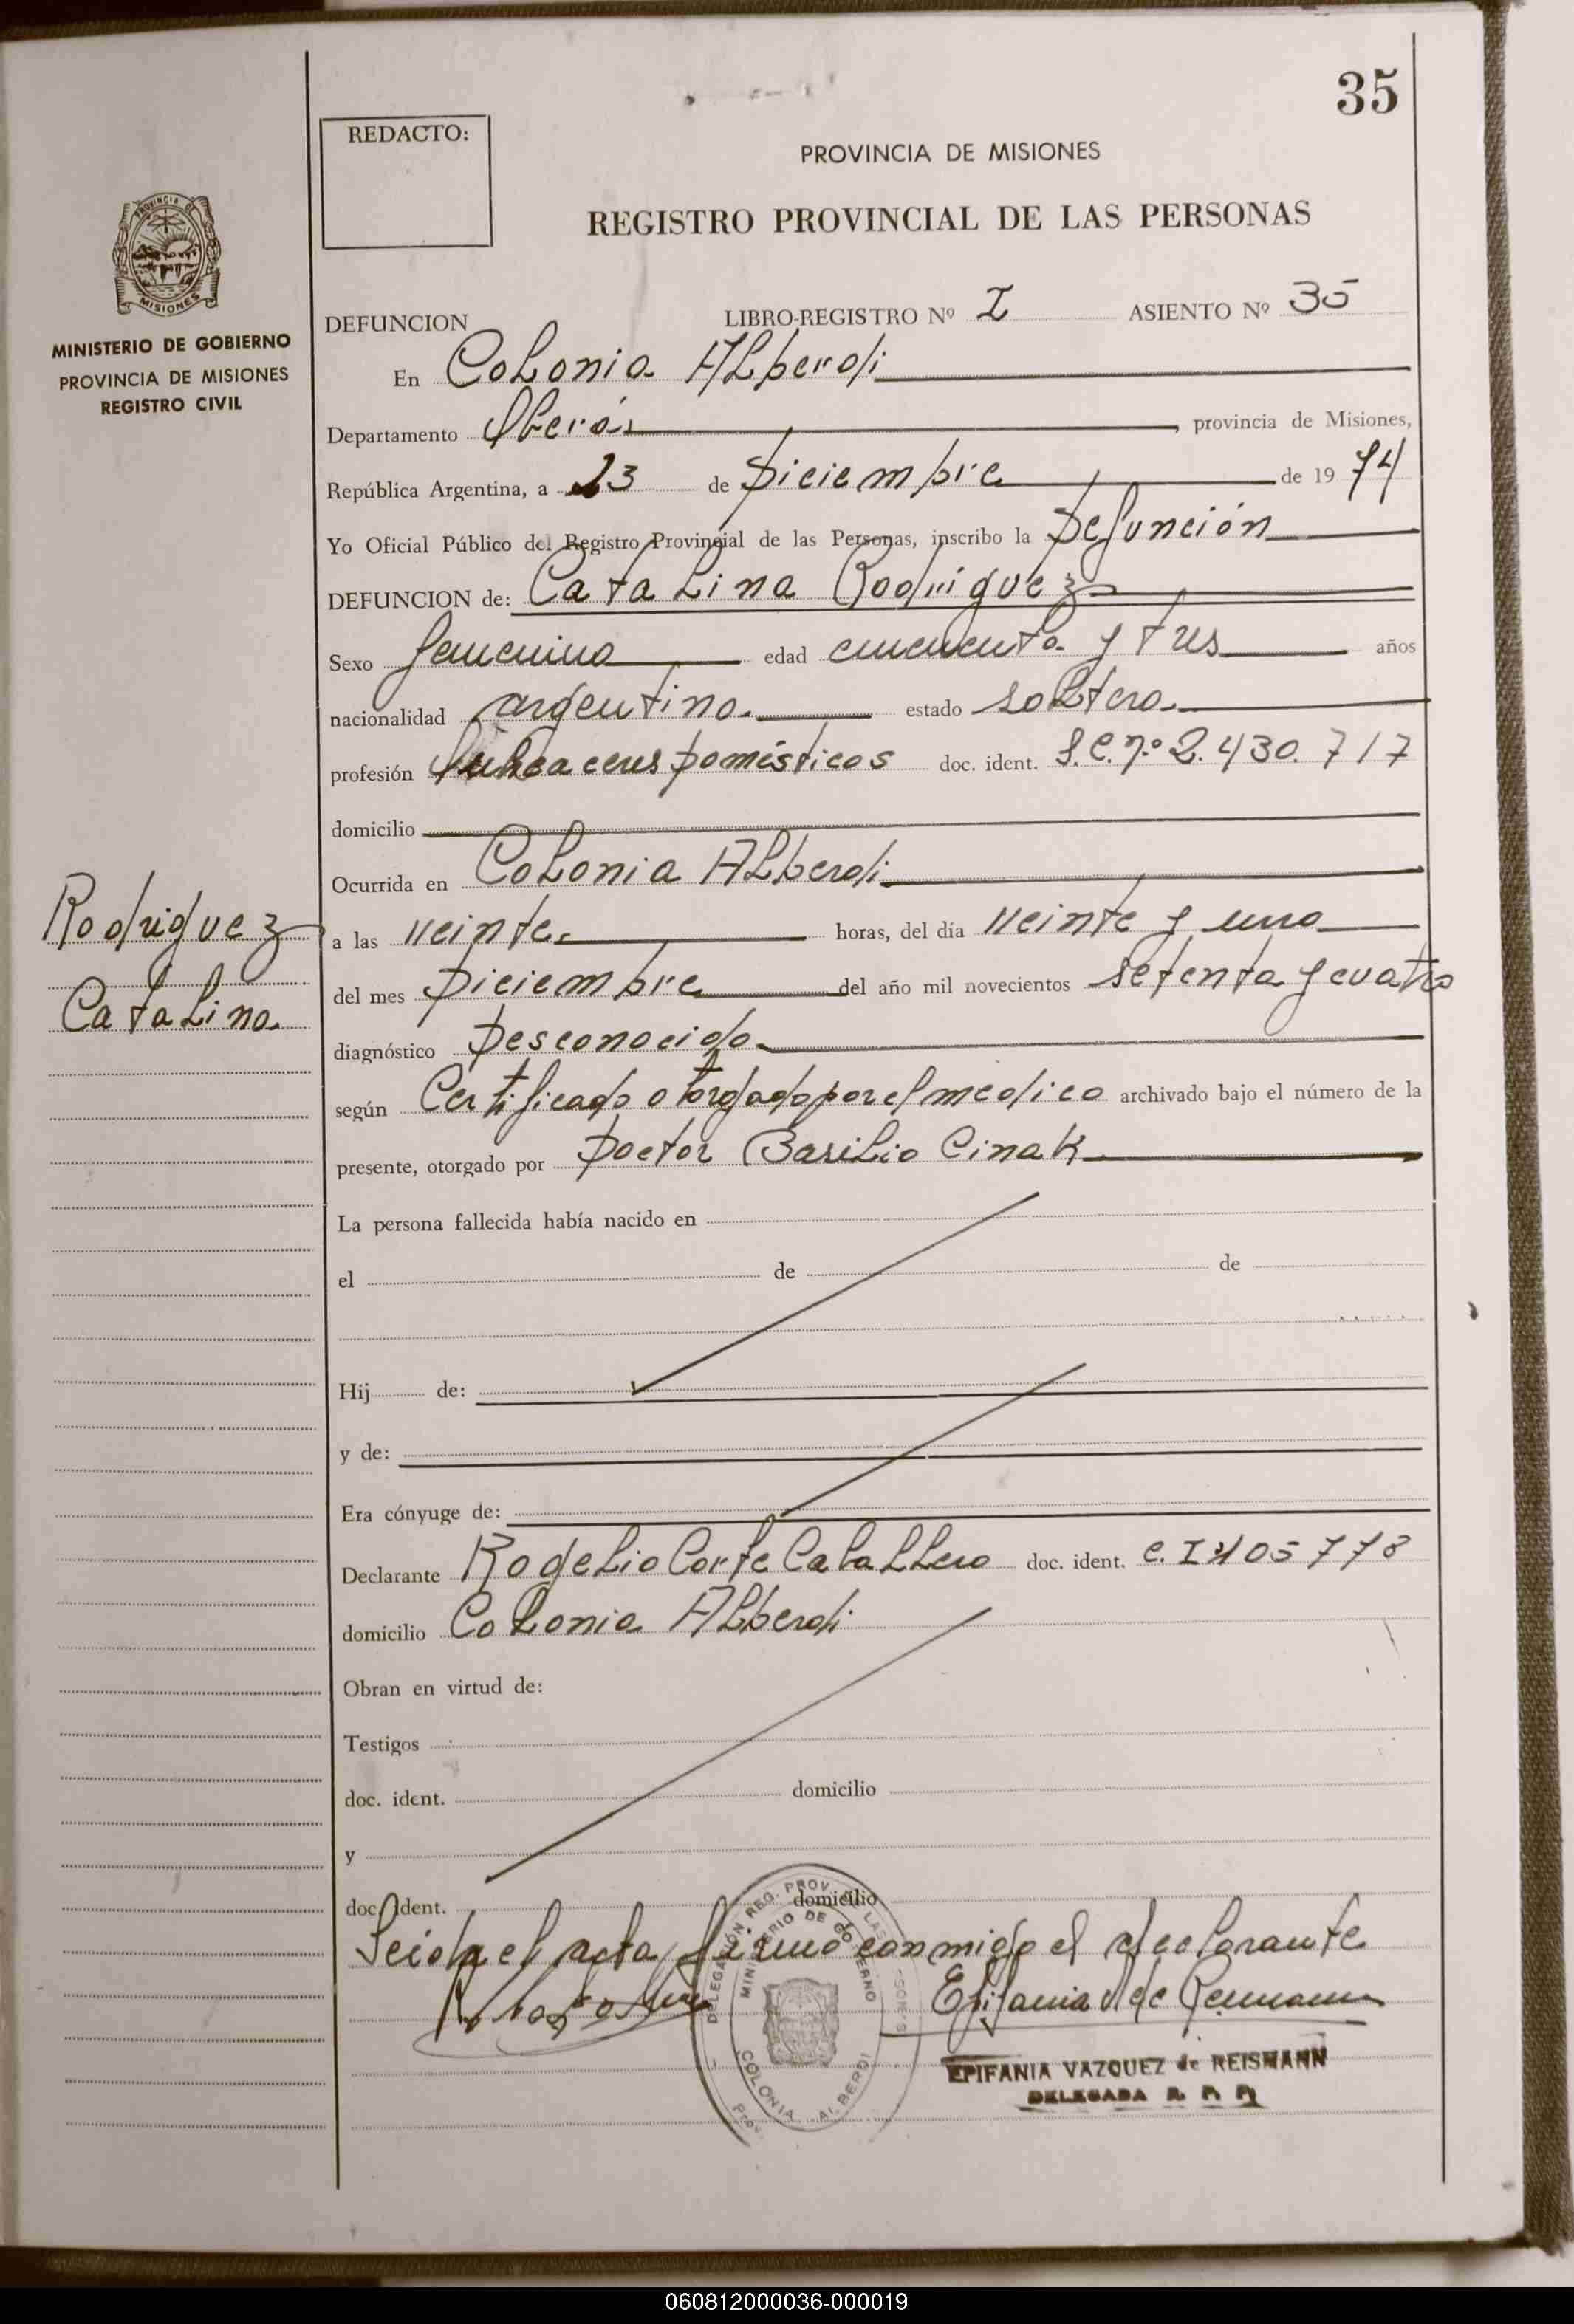 35
REDACTO:
PROVINCIA DE MISIONES
REGISTRO PROVINCIAL DE LAS PERSONAS
PROVINCIA DE
MISIONES
MINISTERIO DE GOBIERNO
PROVINCIA DE MISIONES
REGISTRO CIVIL
DEFUNCION LIBRO-REGISTRO Nº I ASIENTO Nº 35
En Colonia ALberdi
Departamento Oberá provincia de Misiones,
República Argentina, a 23 de Diciembre de 19 74
Yo Oficial Público del Registro Provincial de las Personas, inscribo la Defunción
DEFUNCION de: CataLina Rodriguez
Sexo femenino edad cincuenta y tres años
nacionalidad argentina estado soLtera
profesión Domésticos doc. ident. L.C. nº 2.430.717
domicilio
Ocurrida en CoLonia ALberdi
Rodriguez
CataLina
a las veinte horas, del día veinte y uno
del mes Diciembre del año mil novecientos setenta y cuatro
diagnóstico Desconocido
según Certificado otorgado por el medico archivado bajo el número de la
presente, otorgado por Doctor BasiLio Cinak
La persona fallecida había nacido en
el de de
Hij de:
y de:
Era cónyuge de:
Declarante RogeLio Corte CabaLLero doc. ident. C.I 405778
domicilio CoLonia ALberdi
Obran en virtud de:
Testigos
doc. ident. domicilio
y
doc. ident. domicilio
Leida el acta, firmó conmigo el declarante
Epifania V de Reismann
DELEGACIÓN REG. PROV. DE LAS PERSONAS
MINISTERIO DE GOBIERNO
COLONIA ALBERDI
EPIFANIA VAZQUEZ de REISMANN
DELEGADA R. P. P.
060812000036-000019